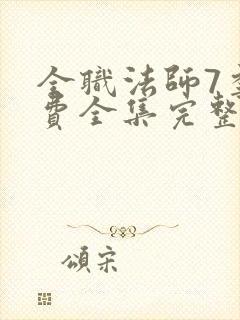 全職法師7
費全集完整
頌宋